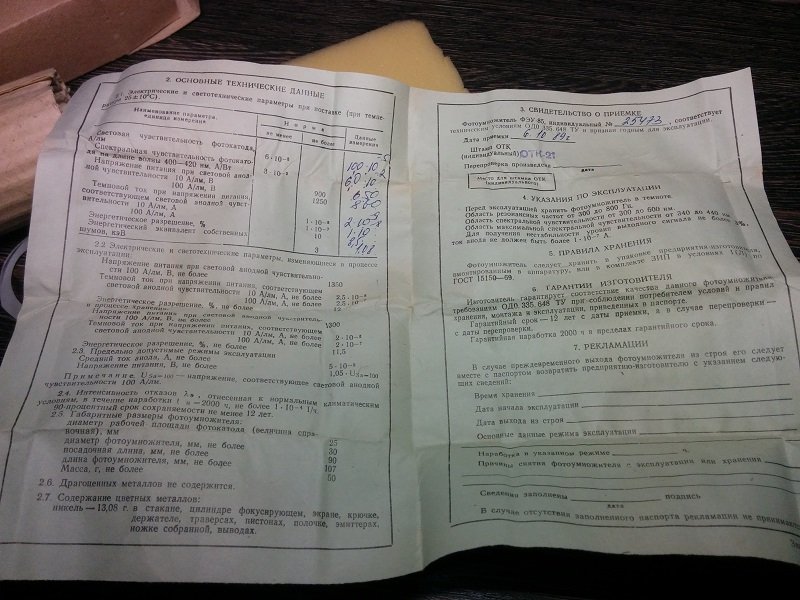 2. ОСНОВНЫЕ ТЕХНИЧЕСКИЕ ДАННЫЕ
2.1. Электрические и светотехнические параметры при поставке (при темпе-
ратуре 25±10°С).
Наименование параметра,
единица измерения
Норма
не менее
не более
Данные
измерения
Световая чувствительность фотокатода,
А/лм
6·10⁻⁵
Спектральная чувствительность фотокато-
да на длине волны 400—420 нм, А/Вт
Напряжение питания при световой анод-
ной чувствительности 10 А/лм, В
900
100 А/лм, В
1250
Темновой ток при напряжении питания,
соответствующем световой анодной чувст-
вительности 10 А/лм, А
100 А/лм, А
Энергетическое разрешение, %
10
Энергетический эквивалент собственных
шумов, кэВ
3
2.2. Электрические и светотехнические параметры, изменяющиеся в процессе
эксплуатации:
Напряжение питания при световой анодной чувствительно-
сти 100 А/лм, В, не более 1350
Темновой ток при напряжении питания, соответствующем
световой анодной чувствительности 10 А/лм, А, не более
100 А/лм, А, не более
Энергетическое разрешение, %, не более 12
в процессе хранения:
Напряжение питания при световой анодной чувствитель-
ности 100 А/лм, В, не более 1300
Темновой ток при напряжении питания, соответствующем
световой анодной чувствительности 10 А/лм, А, не более
100 А/лм, А, не более
Энергетическое разрешение, %, не более 11,5
2.3. Предельно допустимые режимы эксплуатации
Средний ток анода, А, не более
Напряжение питания, В, не более
Примечание. — напряжение, соответствующее световой анодной
чувствительности 100 А/лм.
2.4. Интенсивность отказов отнесенная к нормальным климатическим
условиям, в течение наработки 2000 ч, не более
90-процентный срок сохраняемости не менее 12 лет.
2.5. Габаритные размеры фотоумножителя:
диаметр рабочей площади фотокатода (величина спра-
вочная), мм 25
диаметр фотоумножителя, мм, не более 30
посадочная длина, мм, не более 90
длина фотоумножителя, мм, не более 107
Масса, г, не более 50
2.6. Драгоценных металлов не содержится.
2.7. Содержание цветных металлов:
никель — 13,08 г. в стакане, цилиндре фокусирующем, экране, крючке,
держателе, траверсах, пистонах, полочке, эмиттерах,
ножке собранной, выводах.
3. СВИДЕТЕЛЬСТВО О ПРИЕМКЕ
Фотоумножитель ФЭУ-85, индивидуальный № , соответствует
техническим условиям ОД0.335.648 ТУ и признан годным для эксплуатации.
Дата приемки
Штамп ОТК
(индивидуальный)
Перепроверка произведена
дата
Место для штампа ОТК
(индивидуального)
4. УКАЗАНИЯ ПО ЭКСПЛУАТАЦИИ
Перед эксплуатацией хранить фотоумножитель в темноте.
Область резонансных частот от 300 до 800 Гц.
Область спектральной чувствительности от 300 до 600 нм.
Область максимальной спектральной чувствительности от 340 до 440 нм.
Для получения нестабильности уровня выходного сигнала не более
ток анода не должен быть более 1·10⁻⁷ А.
5. ПРАВИЛА ХРАНЕНИЯ
Фотоумножитель следует хранить в упаковке предприятия-изготовителя,
вмонтированным в аппаратуру, или в комплекте ЗИП в условиях
ГОСТ 15150—69.
6. ГАРАНТИИ ИЗГОТОВИТЕЛЯ
Изготовитель гарантирует соответствие качества данного фотоумножителя
требованиям ОД0.335.648 ТУ при соблюдении потребителем условий и правил
хранения, монтажа и эксплуатации, приведенных в паспорте.
Гарантийный срок — 12 лет с даты приемки, а в случае перепроверки —
с даты перепроверки.
Гарантийная наработка 2000 ч в пределах гарантийного срока.
7. РЕКЛАМАЦИИ
В случае преждевременного выхода фотоумножителя из строя его следует
вместе с паспортом возвратить предприятию-изготовителю с указанием следую-
щих сведений:
Время хранения
Дата начала эксплуатации
Дата выхода из строя
Основные данные режима эксплуатации
Наработка в указанном режиме ч.
Причины снятия фотоумножителя с эксплуатации или хранения
Сведения заполнены
дата
подпись
В случае отсутствия заполненного паспорта рекламации не